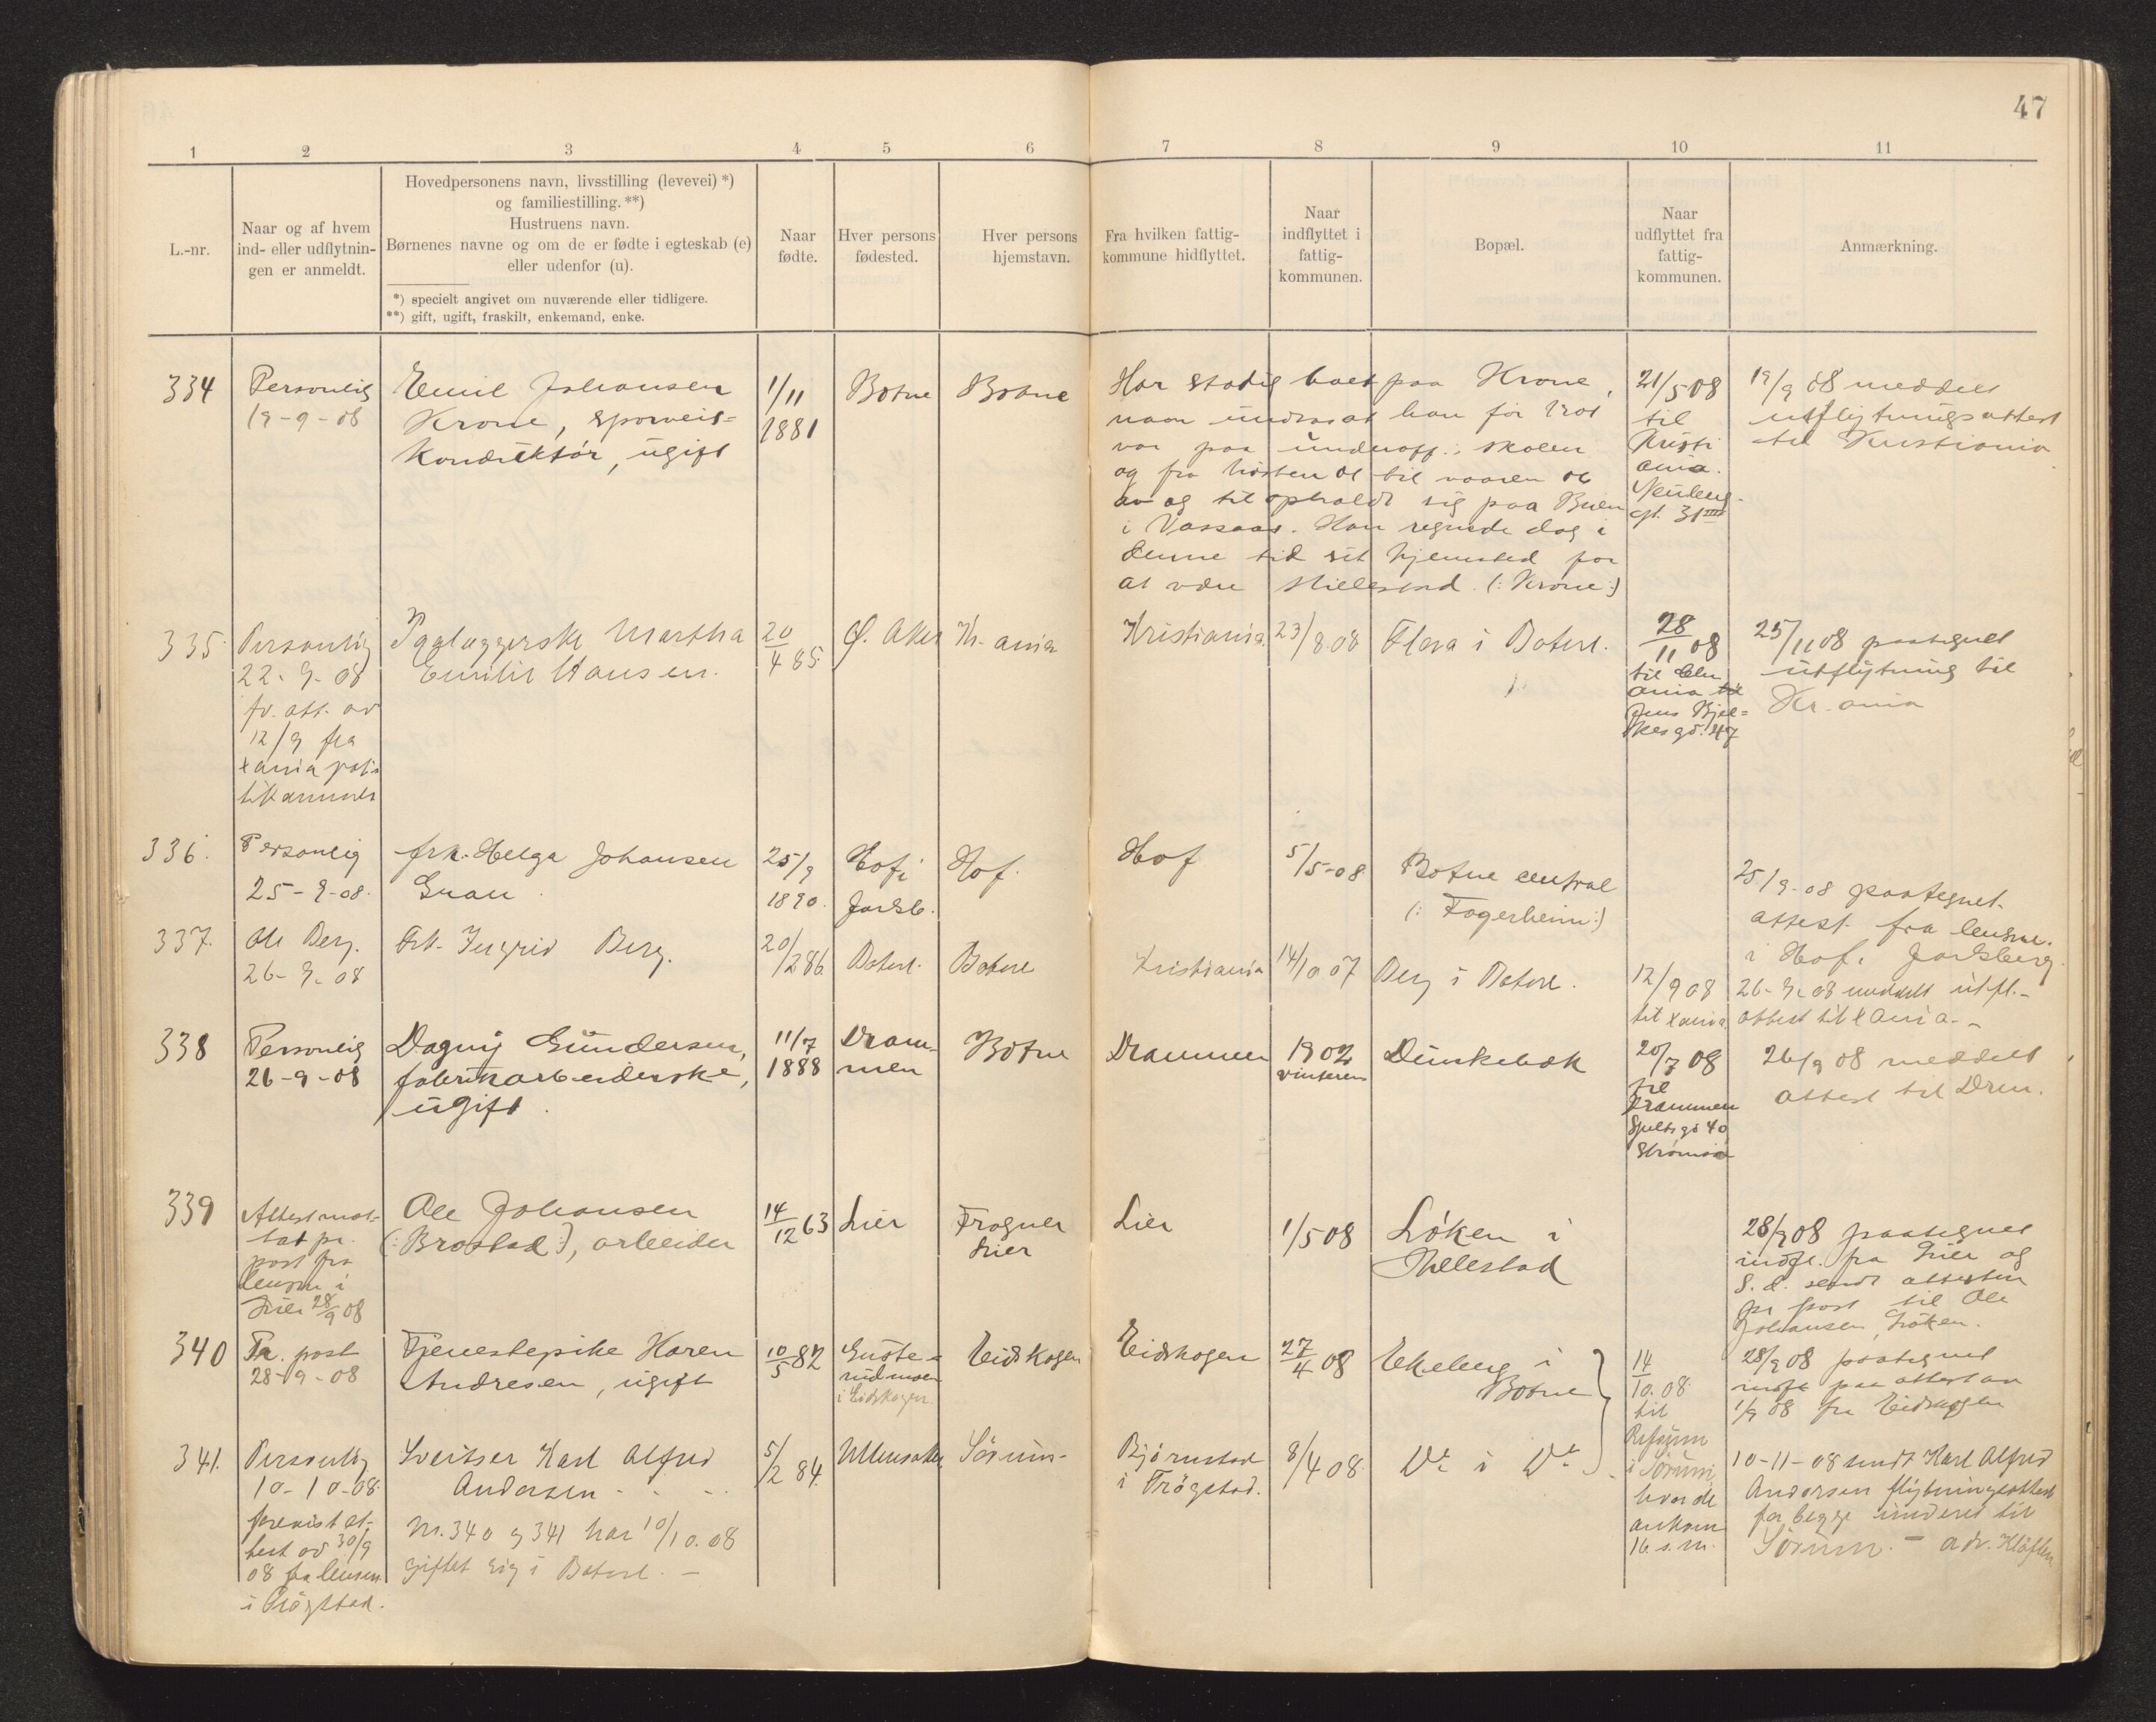 47
1 2 3 4 5 6 7 8 9 10 11
L.-nr.
Naar og af hvem
ind- eller udflytnin-
gen er anmeldt.
Hovedpersonens navn, livsstilling (levevei) *)
og familiestilling. **)
Hustruens navn.
Børnenes navne og om de er fødte i egteskab (e)
eller udenfor (u).
*) specielt angivet om nuværende eller tidligere.
**) gift, ugift, fraskilt, enkemand, enke.
Naar
fødte.
Hver persons
fødested.
Hver persons
hjemstavn.
Fra hvilken fattig-
kommune hidflyttet.
Naar
indflyttet i
fattig-
kommunen.
Bopæl.
Naar
udflyttet fra
fattig-
kommunen.
Anmærkning.
334
Personlig
19-9-08
Emil Johansen
Krone, sporveis-
konduktør, ugift
1/11
1881
Botne
Botne
Har stadig boet paa Krone,
naar undtas at han før 1901
var paa underoff. skolen
og fra høsten 01 til vaaren 06
av og til opholdt sig paa Buen
i Vassaas. Han regnede dog i
denne tid sit hjemsted for
at være Hillestad (: Krone :)
21/5 08
til
Kristi
ania.
Neuberg-
gt. 31 III
19/9 08 meddelt
utflytningsattest
til Kristiania
335.
Personlig
22-9-08
fv. att. av
12/9 fra
Xania poli-
tikammer
Martha
Emilie Hansen.
20
4 85.
Ø. Aker
Kr.ania
Kristiania.
23/8.08
i Botne.
28
11 08
til Chr
ania
Jens Bjel-
kesgd. 47
25/11 08 paategnet
utflytning til
Kr.ania
336.
Personlig
25-9-08.
frk. Helga Johansen
Gran
25/9
1890.
Hof i
Jarlsb.
Hof.
Hof
5/5-08
Botne central
(: Fagerheim :)
25/9-08 paategnet
attest fra lensm.
i Hof, Jarlsberg.
337.
Ole Berg.
26-9-08
Frk. Ingrid Berg.
20/2 86
Botne.
Botne
Kristiania
14/10 07
Berg i Botne.
12/9 08
til Xania
26-9-08 meddelt utfl.-
attest til Xania.-
338
Personlig
26-9-08
Dagny Gundersen,
fabrikarbeiderske,
ugift.
11/7
1888
Dram-
men
Botne
Drammen
1902
vinteren
Dunkebæk
20/7 08
til
Drammen
40
Strømsø
26/9 08 meddelt
attest til Drm.
339
Attest mot-
tat pr.
post fra
lensm i
Lier 28/9 08
Ole Johansen
(: Brastad :), arbeider
14
12 63
Lier
Frogner
Lier
Lier
1/5 08
Løken i
Hillestad
28/9 08 paategnet
indfl. fra Lier og
s. d. sendt attesten
pr post til Ole
Johansen, Løken.
340
Pr. post
28-9-08
Tjenestepike Karen
Andresen, ugift
10
5 82
i Eidskogen.
Eidskogen
Eidskogen
27
4 08
Ekeberg i
Botne
14
10.08.
til
i Sørum,
hvor de
ankom
16. s. m.
28/9 08 paategnet
indfl paa attest av
1/9 08 fra Eidskogen
341.
Personlig
10-10-08.
forevist at-
test av 30/9
08 fra lensm.
i Trøgstad.
Sveitser Karl Alfred
Andersen
Nr. 340 og 341 har 10/10.08
giftet sig i Botne. -
5/2 84.
Ullensaker
Sørum-
Bjørnstad
i Trøgstad.
8/4 08.
Do i Do
10-11-08 sendt Karl Alfred
Andersen flytningsattest
for begge
Sørum. - adr. Kløften